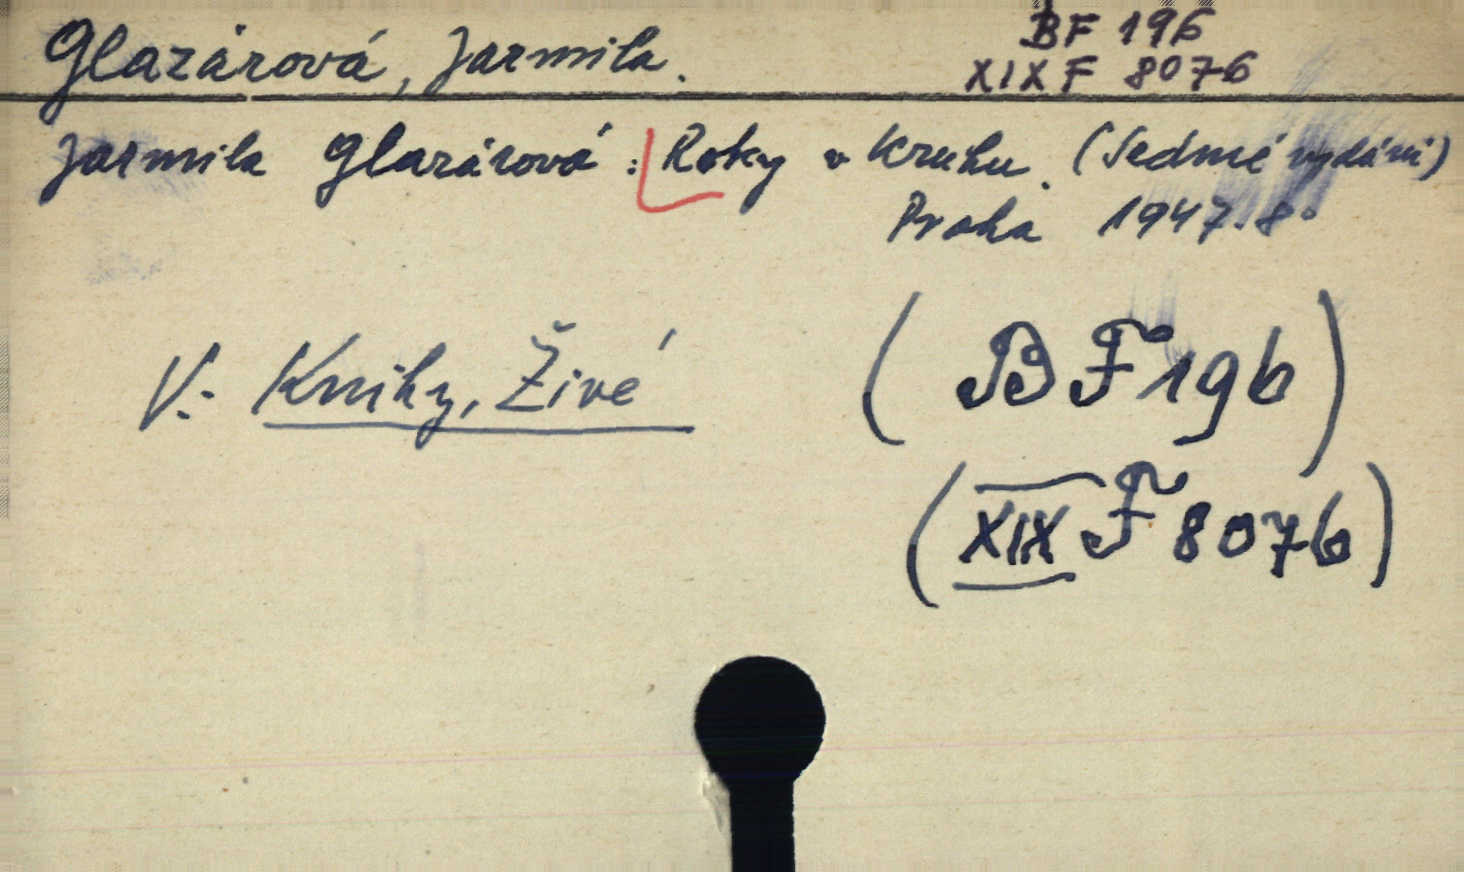 Glazárová, Jarmila.
BF 196
XIX F 8076
Jarmila Glazárová: Roky v kruhu. (Sedmé vydání)
Praha 1947. 8°
V.: Knihy, Živé
(BF 196)
(XIX F 8076)